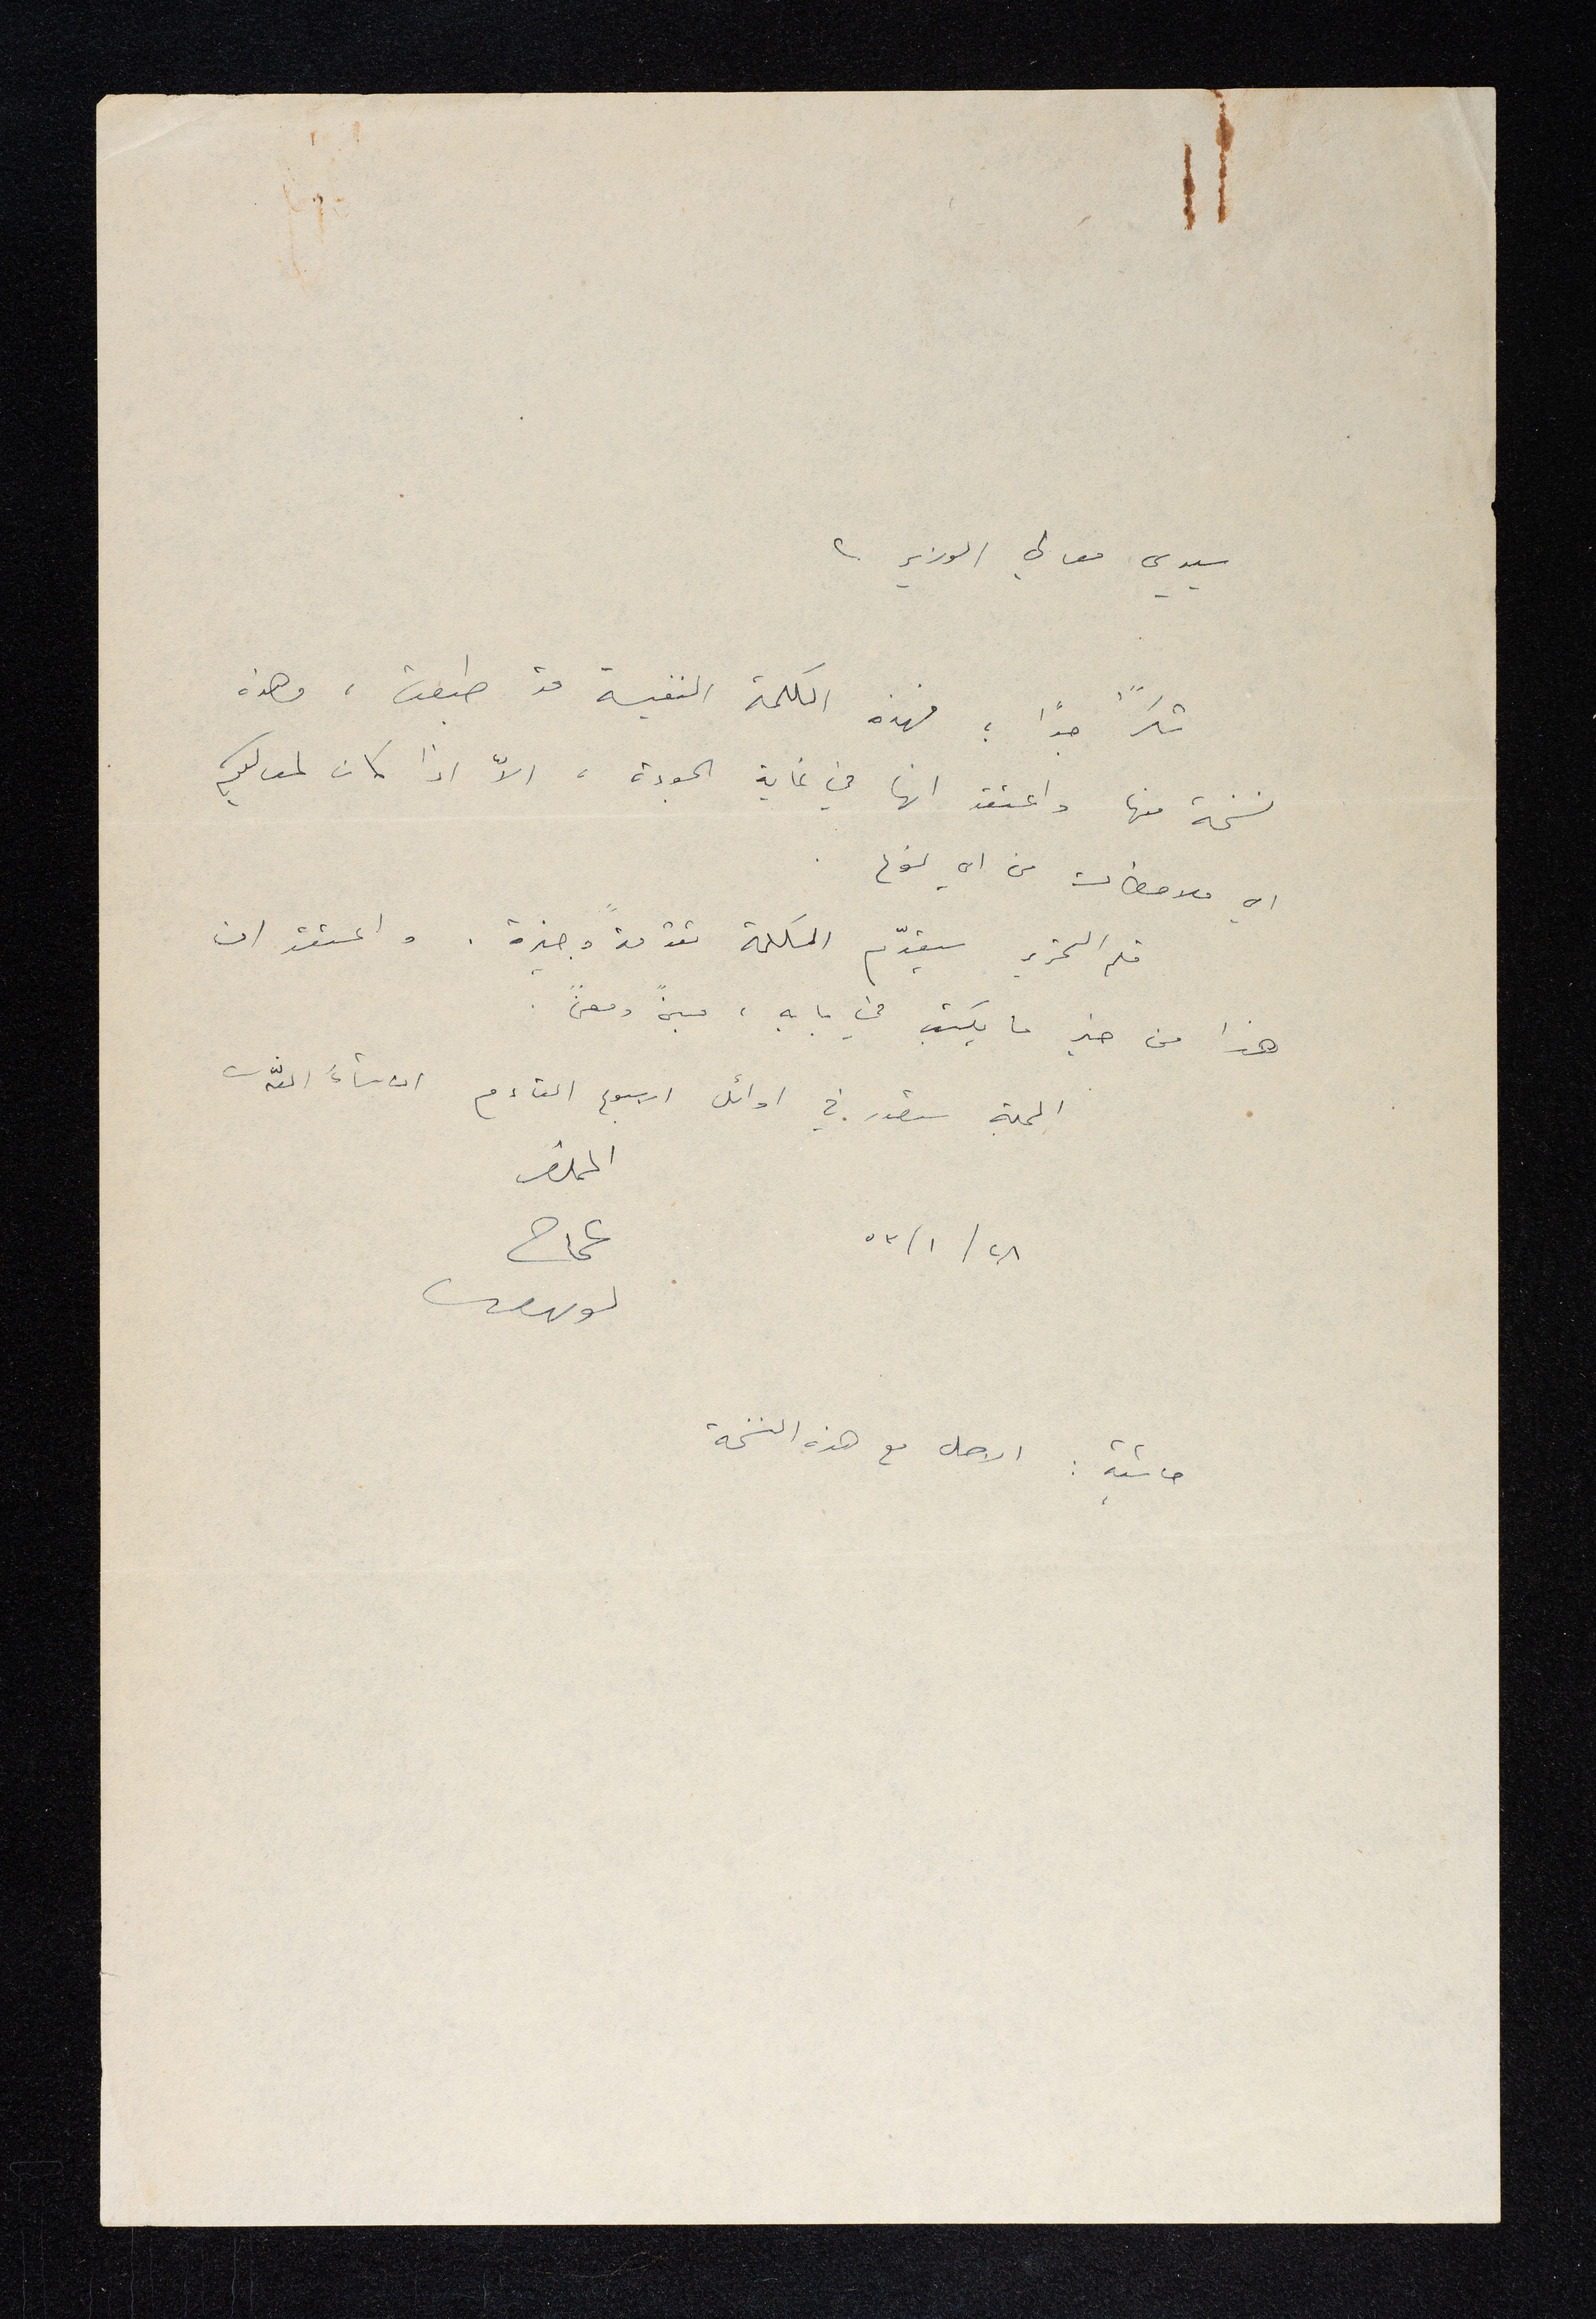 سيدي معالي الوزير ،
شكراً جدًا ؛ فهذه الكلمة النفيسة قد طبعت ، وهذه
نسخة منها واعتقد انها في غاية الجودة ، الاّ اذا كان لمعاليكم
اي ملاحظات من اي نوع .
قلم التحرير سيقدّم الكلمة تقدمةً وجيزة . واعتقد ان
هذا من خير ما يكتب في بابه ، مبنىً ومعنىً .
المجلة ستصدر في اوائل اسبوع القادم ان شاء الله
المخلص
٢٨ / ١ / ٥٣
حاشية : الاصل مع هذه النسخة